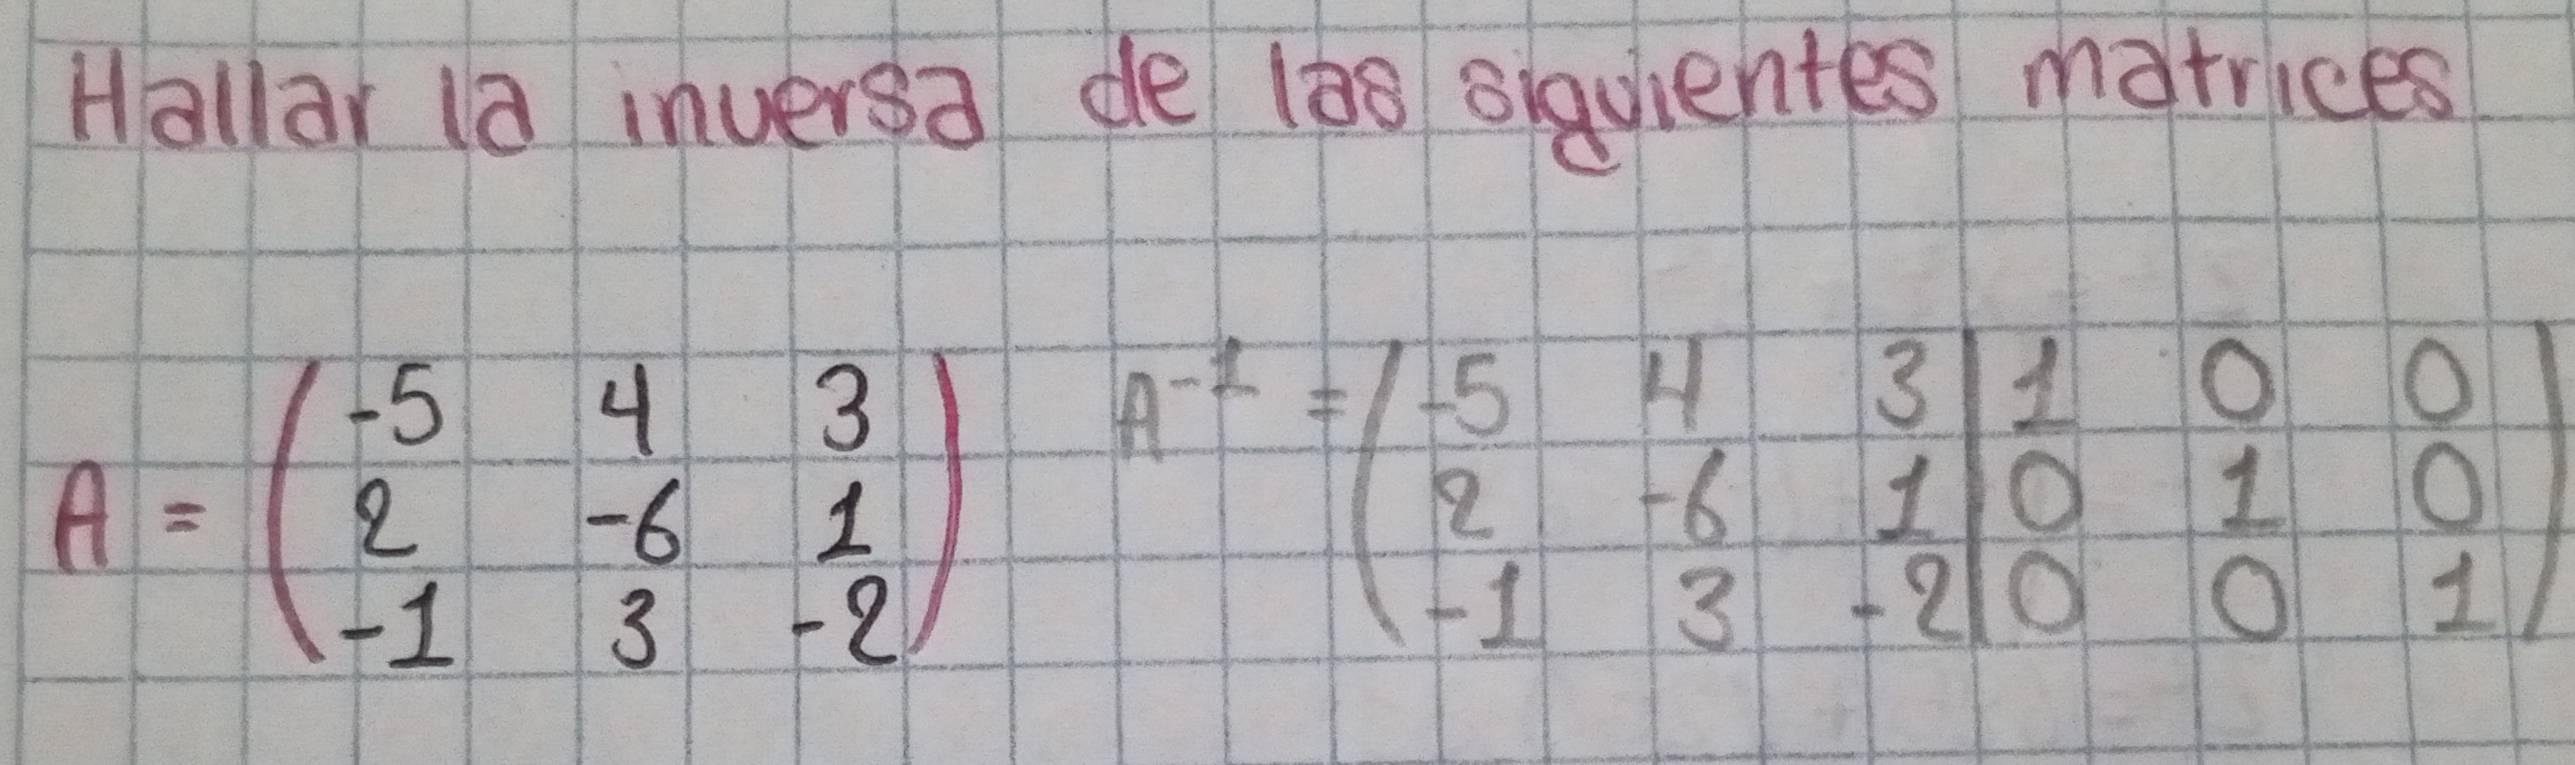 Hallar la inversa de las siguientes matrices
A = ( -5 4 3 ) A⁻¹ = ( -5 4 3 | 1 0 0 )
2 -6 1 2 -6 1 | 0 1 0
-1 3 -2 -1 3 -2 | 0 0 1